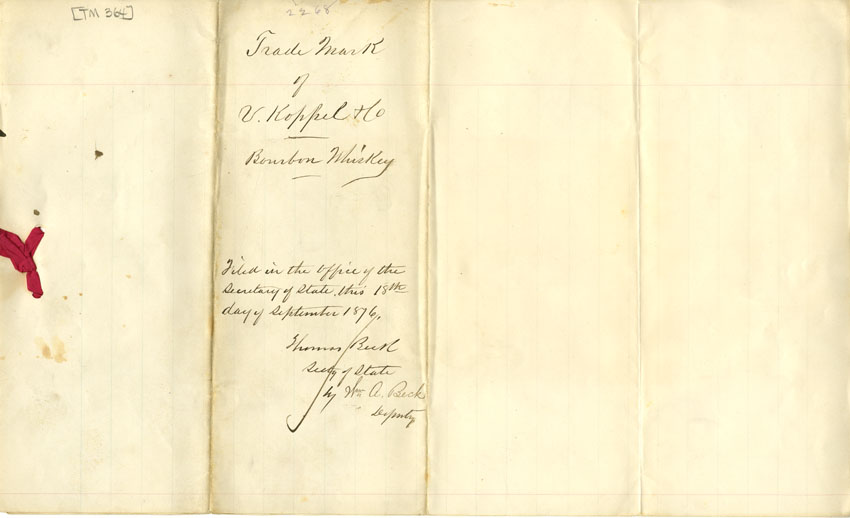 [TM 364]
2268
Trade Mark
of
V. Koppel & Co
Bourbon Whiskey
Filed in the Office of the
Secretary of State, this 18th
day of September 1876.
Thomas Beck
Secty of State
by Wm A. Beck
Deputy